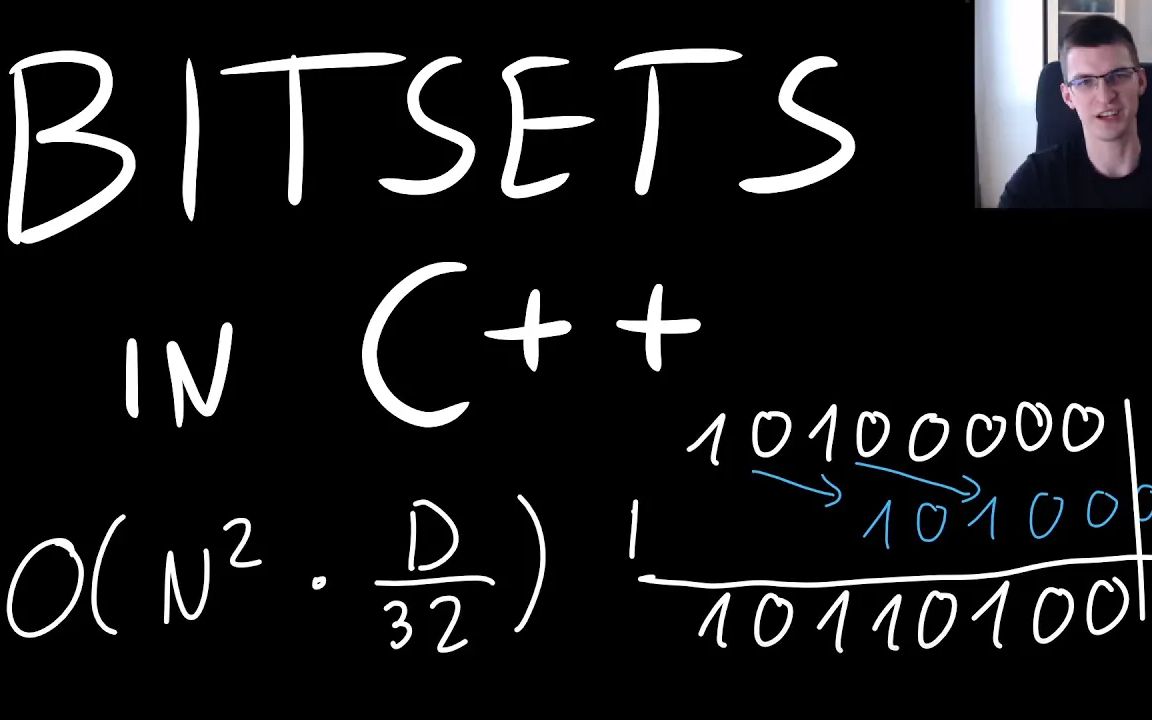 BITSETS
IN C++
10100000
101000
O(N² · D/32)
10110100